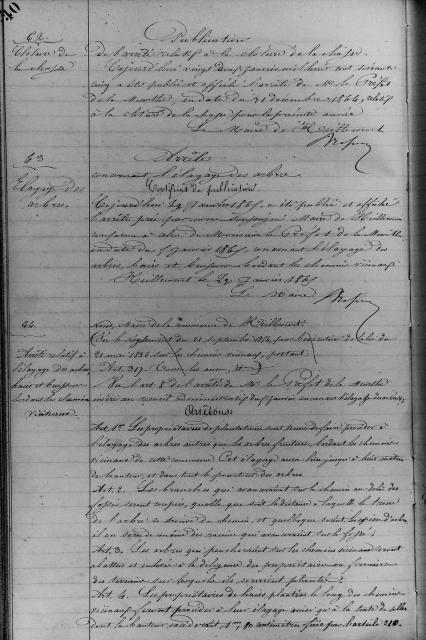 40
62.
Publication
Clôture de
la chasse
de l'arrêté relatif à la clôture de la chasse.
Cejourd'hui vingt neuf janvier mil huit cent soixante
cinq a été publié et affiché l'arrêté de Mr. le Préfet
de la Meurthe, en date du 31 décembre 1864, relatif
à la clôture de la chasse pour la présente année
Le Maire de Heillecourt
63
Arrêté
Elagage des
arbres.
concernant l'élagage des arbres.
Certificat de publication.
Cejourd'hui 29 Janvier 1865, a été publié et affiché
l'arrêté pris par nous Maire de Heillecourt
conforme à celui de Monsieur le Préfet de la Meurthe
en date du Janvier 1865, concernant l'élagage des
arbres, haies et buissons bordant les chemins vicinaux
Heillecourt le 29 Janvier 1865
Le Maire
64.
Arrêté relatif à
l'élagage des arbres,
haies et buissons
bordant les chemins
vicinaux.
Nous, Maire de la commune de Heillecourt
Vu le règlement du 21 septembre 1854, pour l'exécution de la loi du
21 mai 1836 sur les chemins vicinaux, portant
Art. 317
Vu l'art 8 de l'arrêté de Mr. le Préfet de la Meurthe
inséré au recueil administratif du janvier concernant l'élagage
Arrêtons:
Art. 1er Les propriétaires de plantations sont tenus de faire procéder à
l'élagage des arbres autres que les arbres fruitiers, bordant les chemins
vicinaux de cette commune. Cet élagage aura lieu jusqu'à huit mètres
de hauteur, et dans tout le pourtour des arbres
Art. 2. Les branches qui avanceraient sur le chemin au delà des
fossés, seront coupées, quelle que soit la distance à laquelle le tronc
de l'arbre se trouve du chemin, et quelle que soit l'espèce d'arbre
il en sera de même des racines qui avanceraient sur le fossé.
Art. 3. Les arbres qui pencheraient sur les chemins vicinaux seront
abattus et enlevés à la diligence des propriétaires ou fermiers
des terrains sur lesquels ils seraient plantés.
Art. 4. Les propriétaires de haies plantées le long des chemins
vicinaux feront procéder à leur élagage ainsi qu'à la tonte de celles
dont la hauteur excèderait 1m, centimètres fixés par l'article 310.